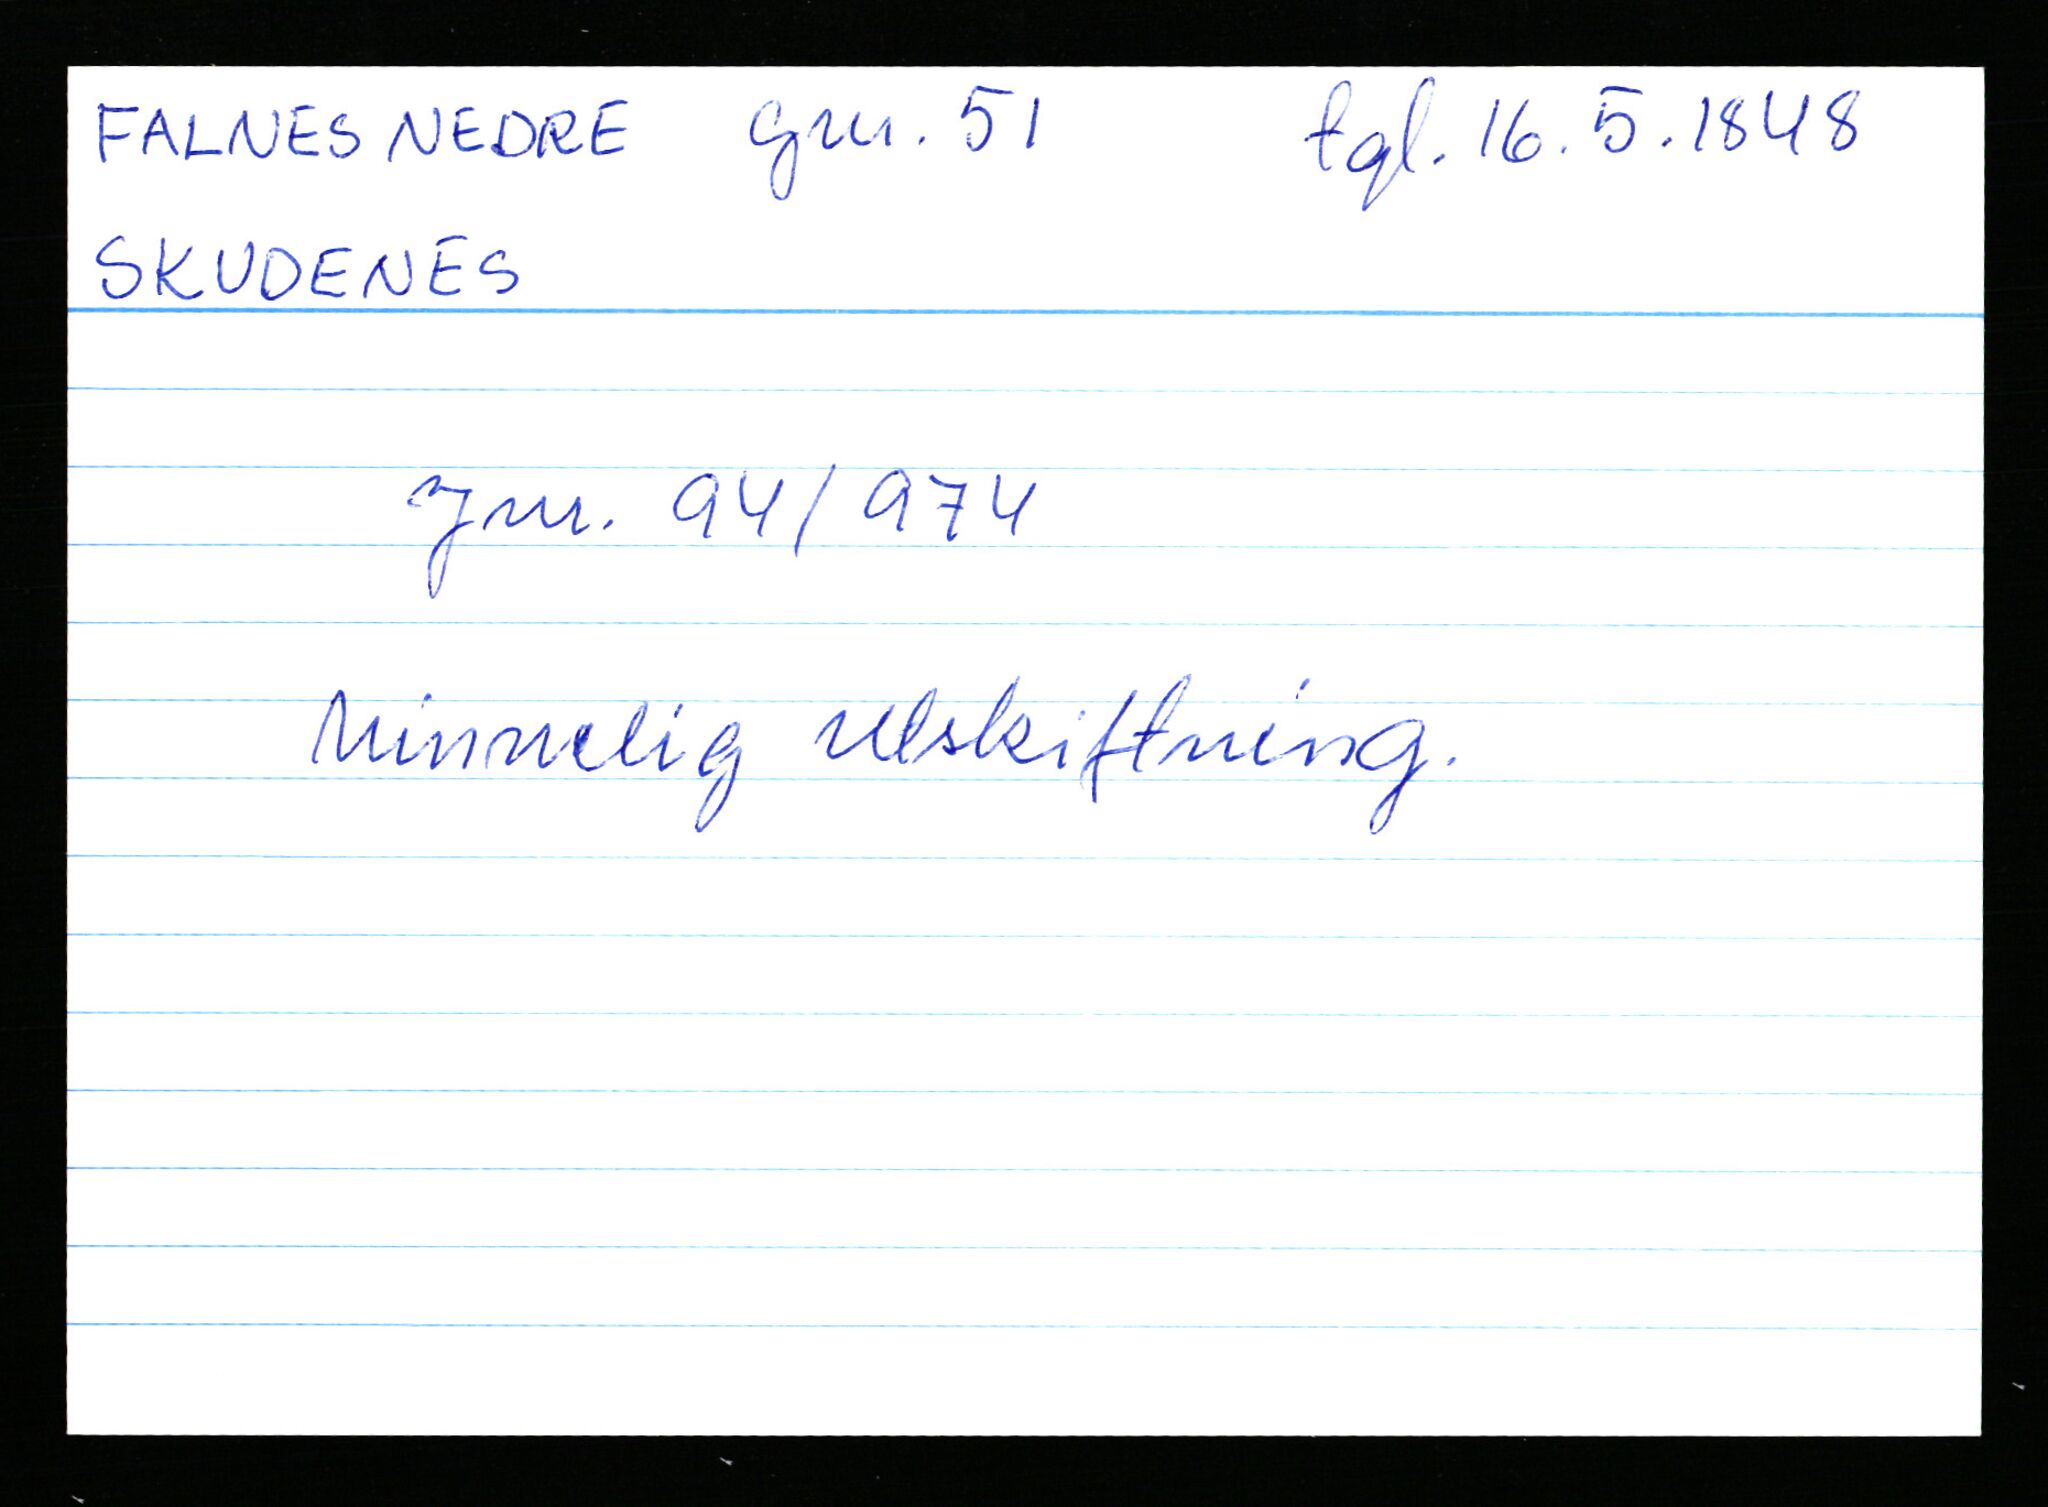 FALNES NEDRE gnr. 51 tgl. 16.5.1848
SKUDENES
jnr. 94/974
Minnelig utskiftning.